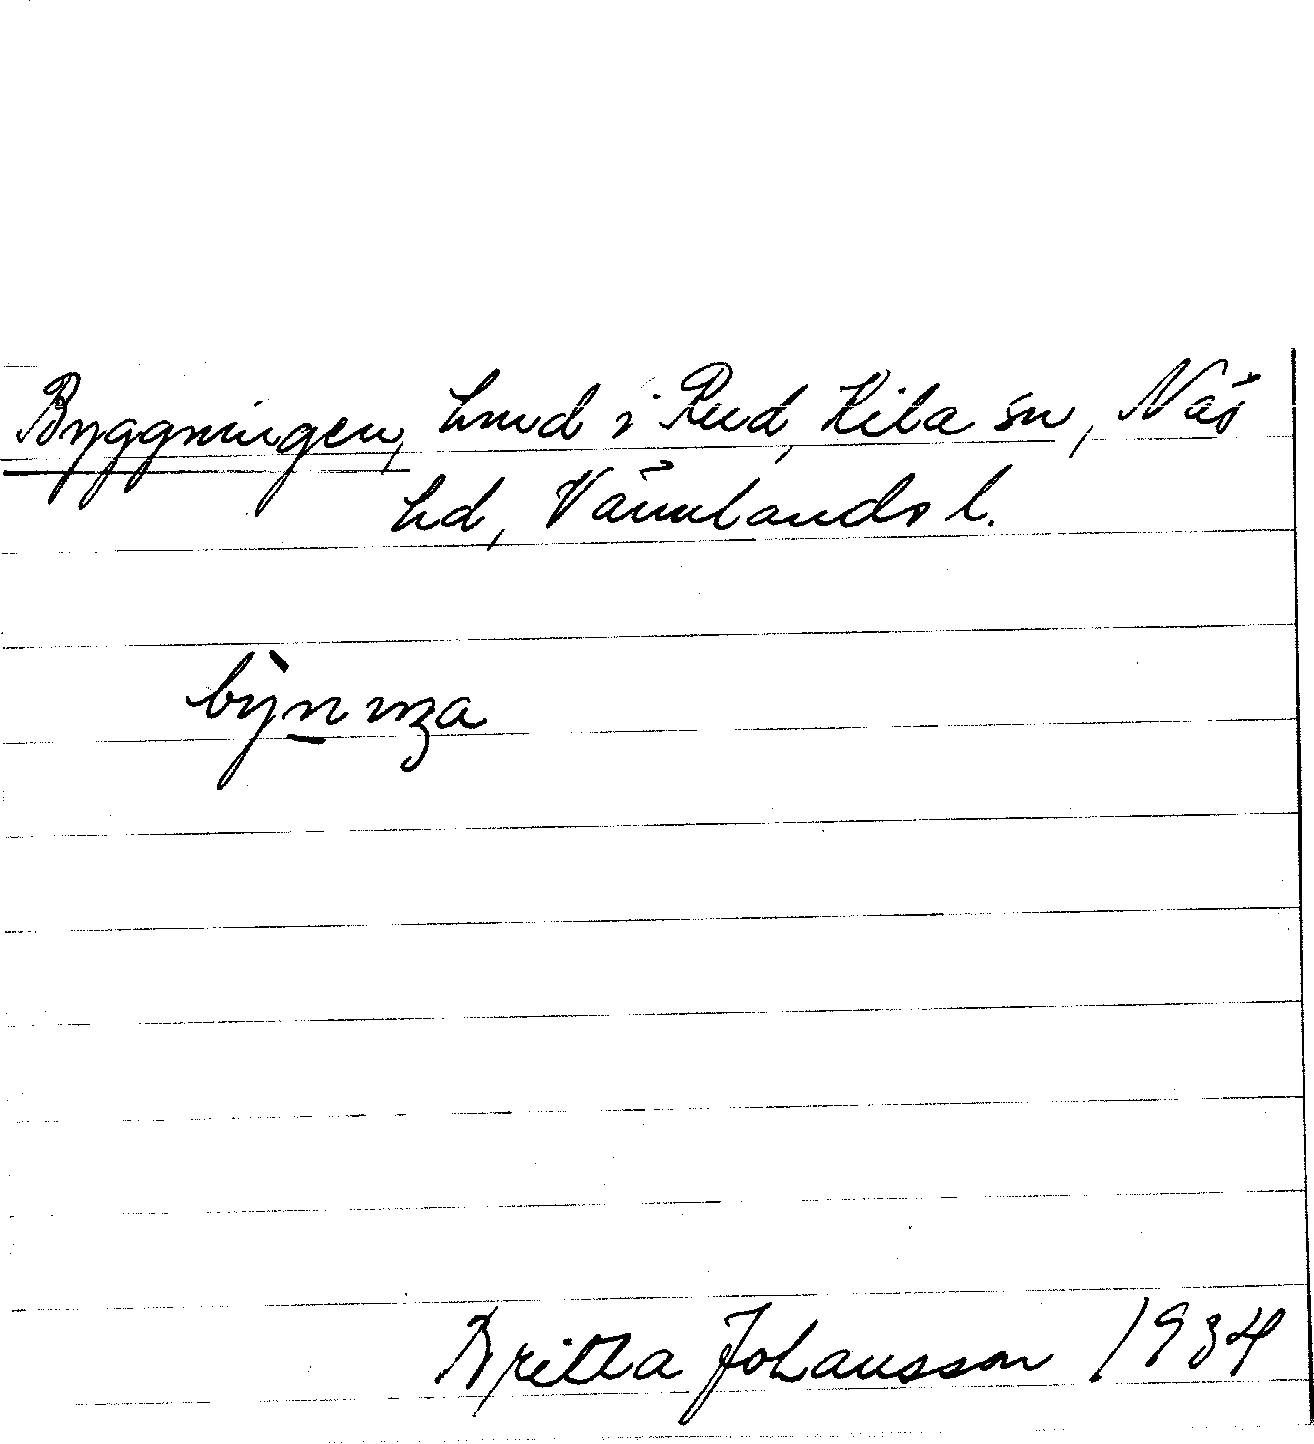 Byggningen, hmd i Rud, Kila sn, Näs
hd, Värmlands l.
Britta Johansson 1934